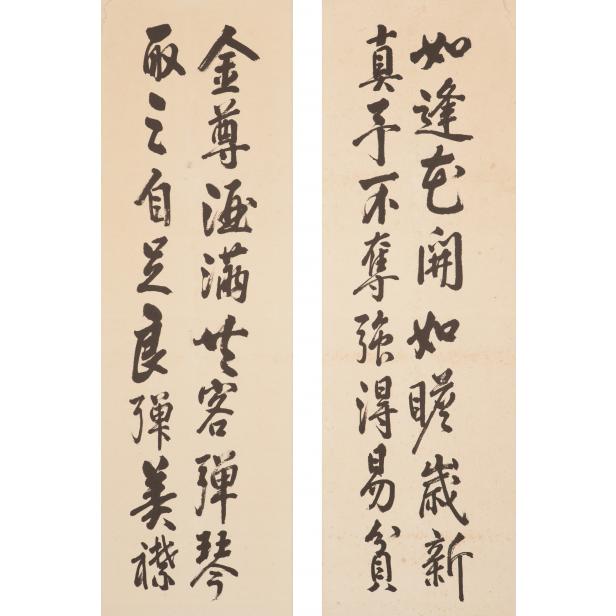 如逢花開如瞻歲新
真予不奪強得易貧
金尊酒滿共客彈琴
取之自足良殫美襟